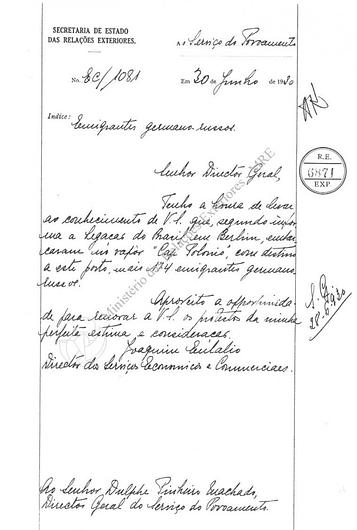 SECRETARIA DE ESTADO
DAS RELAÇÕES EXTERIORES.
A Serviço do Povoamento
No. EC/1081
Em 30 de Junho de 1930
Indice:
Emigrantes germano-russos.
R.E.
6871
EXP.
Senhor Director Geral,
Tenho a honra de levar
ao conhecimento de V.S. que, segundo infor-
ma a Legação do Brasil em Berlim, embar-
caram no vapor "Cap Polonio", com destino
a este porto, mais 174 emigrantes germano-
russos.
Aproveito a opportunida-
de para renovar a V.S. os protestos da minha
perfeita estima e consideração.
Joaquim Eulalio
Director dos Serviços Economicos e Commerciaes.
28.6.930
Ao Senhor Dulphe Pinheiro Machado,
Director Geral do Serviço do Povoamento.
Ministério das Relações Exteriores